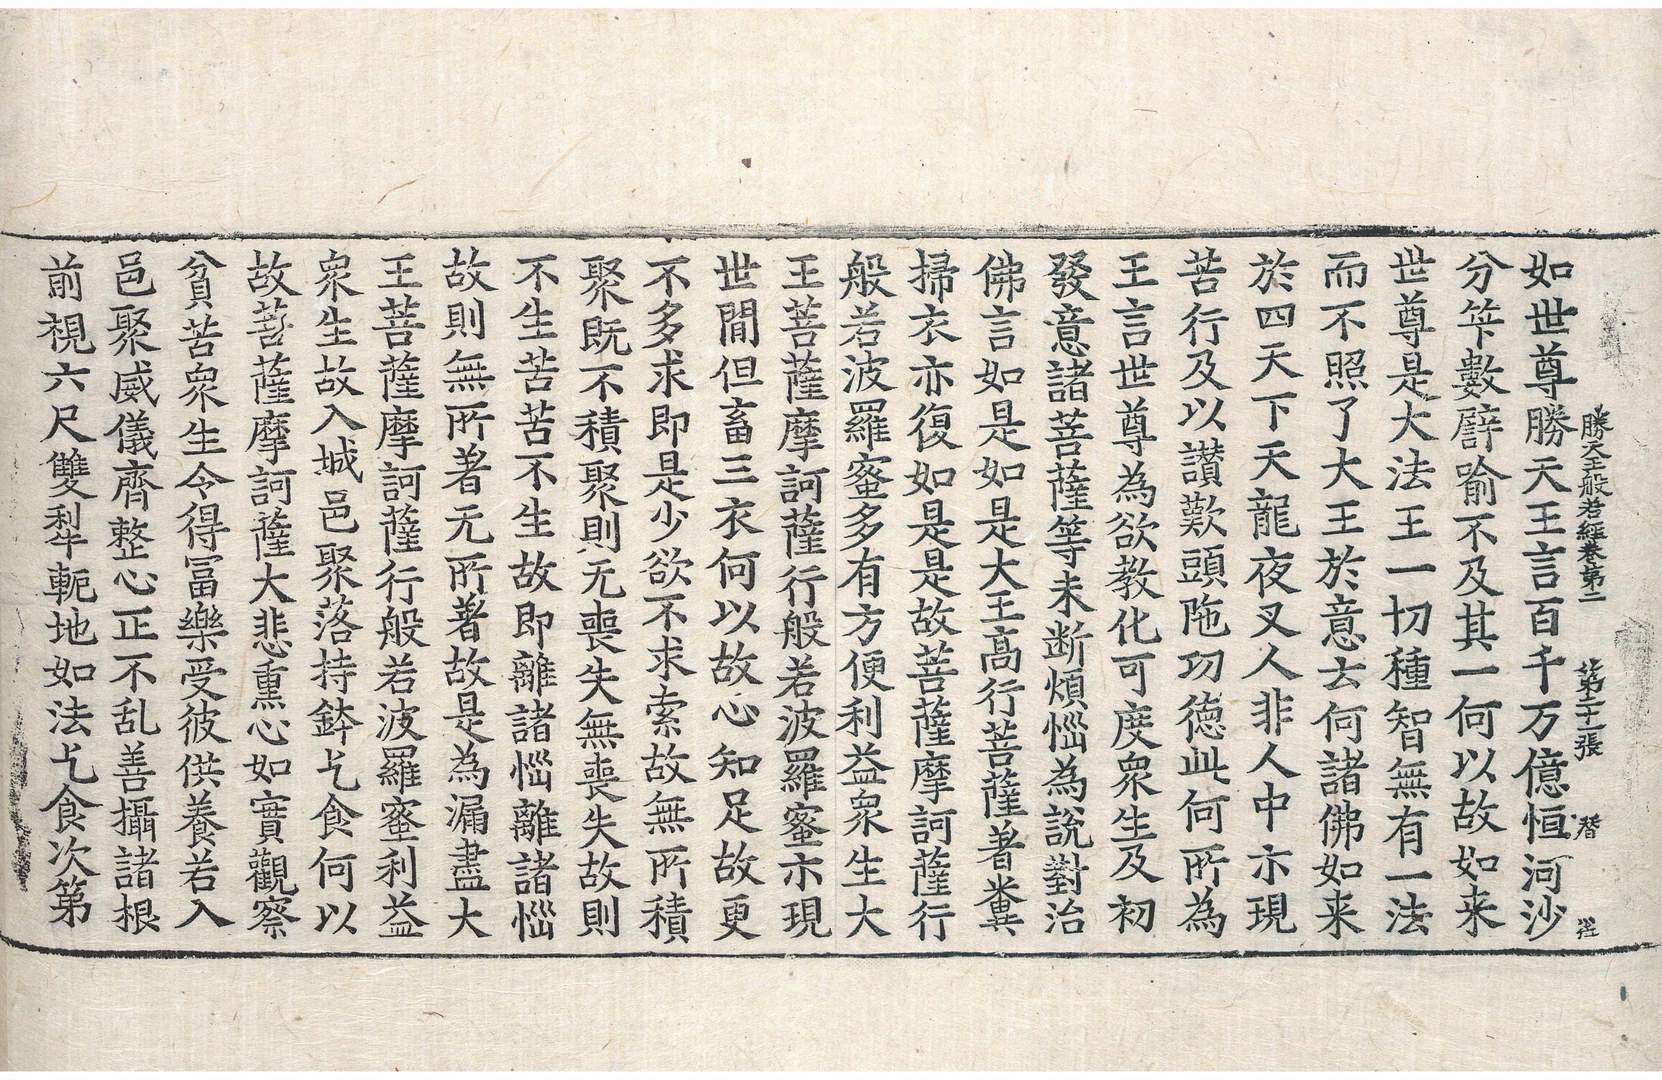 勝天王般若經卷第二　第二十二張　替
如世尊勝天王言百千万億恒河沙
分筭數譬喻不及其一何以故如来
世尊是大法王一切種智無有一法
而不照了大王於意去何諸佛如来
於四天下天龍夜叉人非人中亦現
苦行及以讃歎頭陁㓛德此何所為
王言世尊為欲教化可度衆生及初
發意諸菩薩等未断煩惱為說對治
佛言如是如是大王髙行菩薩著糞
掃衣亦復如是是故菩薩摩訶薩行
般若波羅蜜多有方便利益衆生大
王菩薩摩訶薩行般若波羅蜜亦現
世閒但畜三衣何以故心知足故更
不多求即是少欲不求索故無所積
聚既不積聚則无喪失無喪失故則
不生苦苦不生故即離諸惱離諸惱
故則無所著无所著故是為漏盡大
王菩薩摩訶薩行般若波羅蜜利益
衆生故入城邑聚落持鉢乞食何以
故菩薩摩訶薩大悲熏心如實觀察
貧苦衆生令得冨樂受彼供養若入
邑聚威儀齊整心正不乱善攝諸根
前視六尺雙犁軛地如法乞食次第